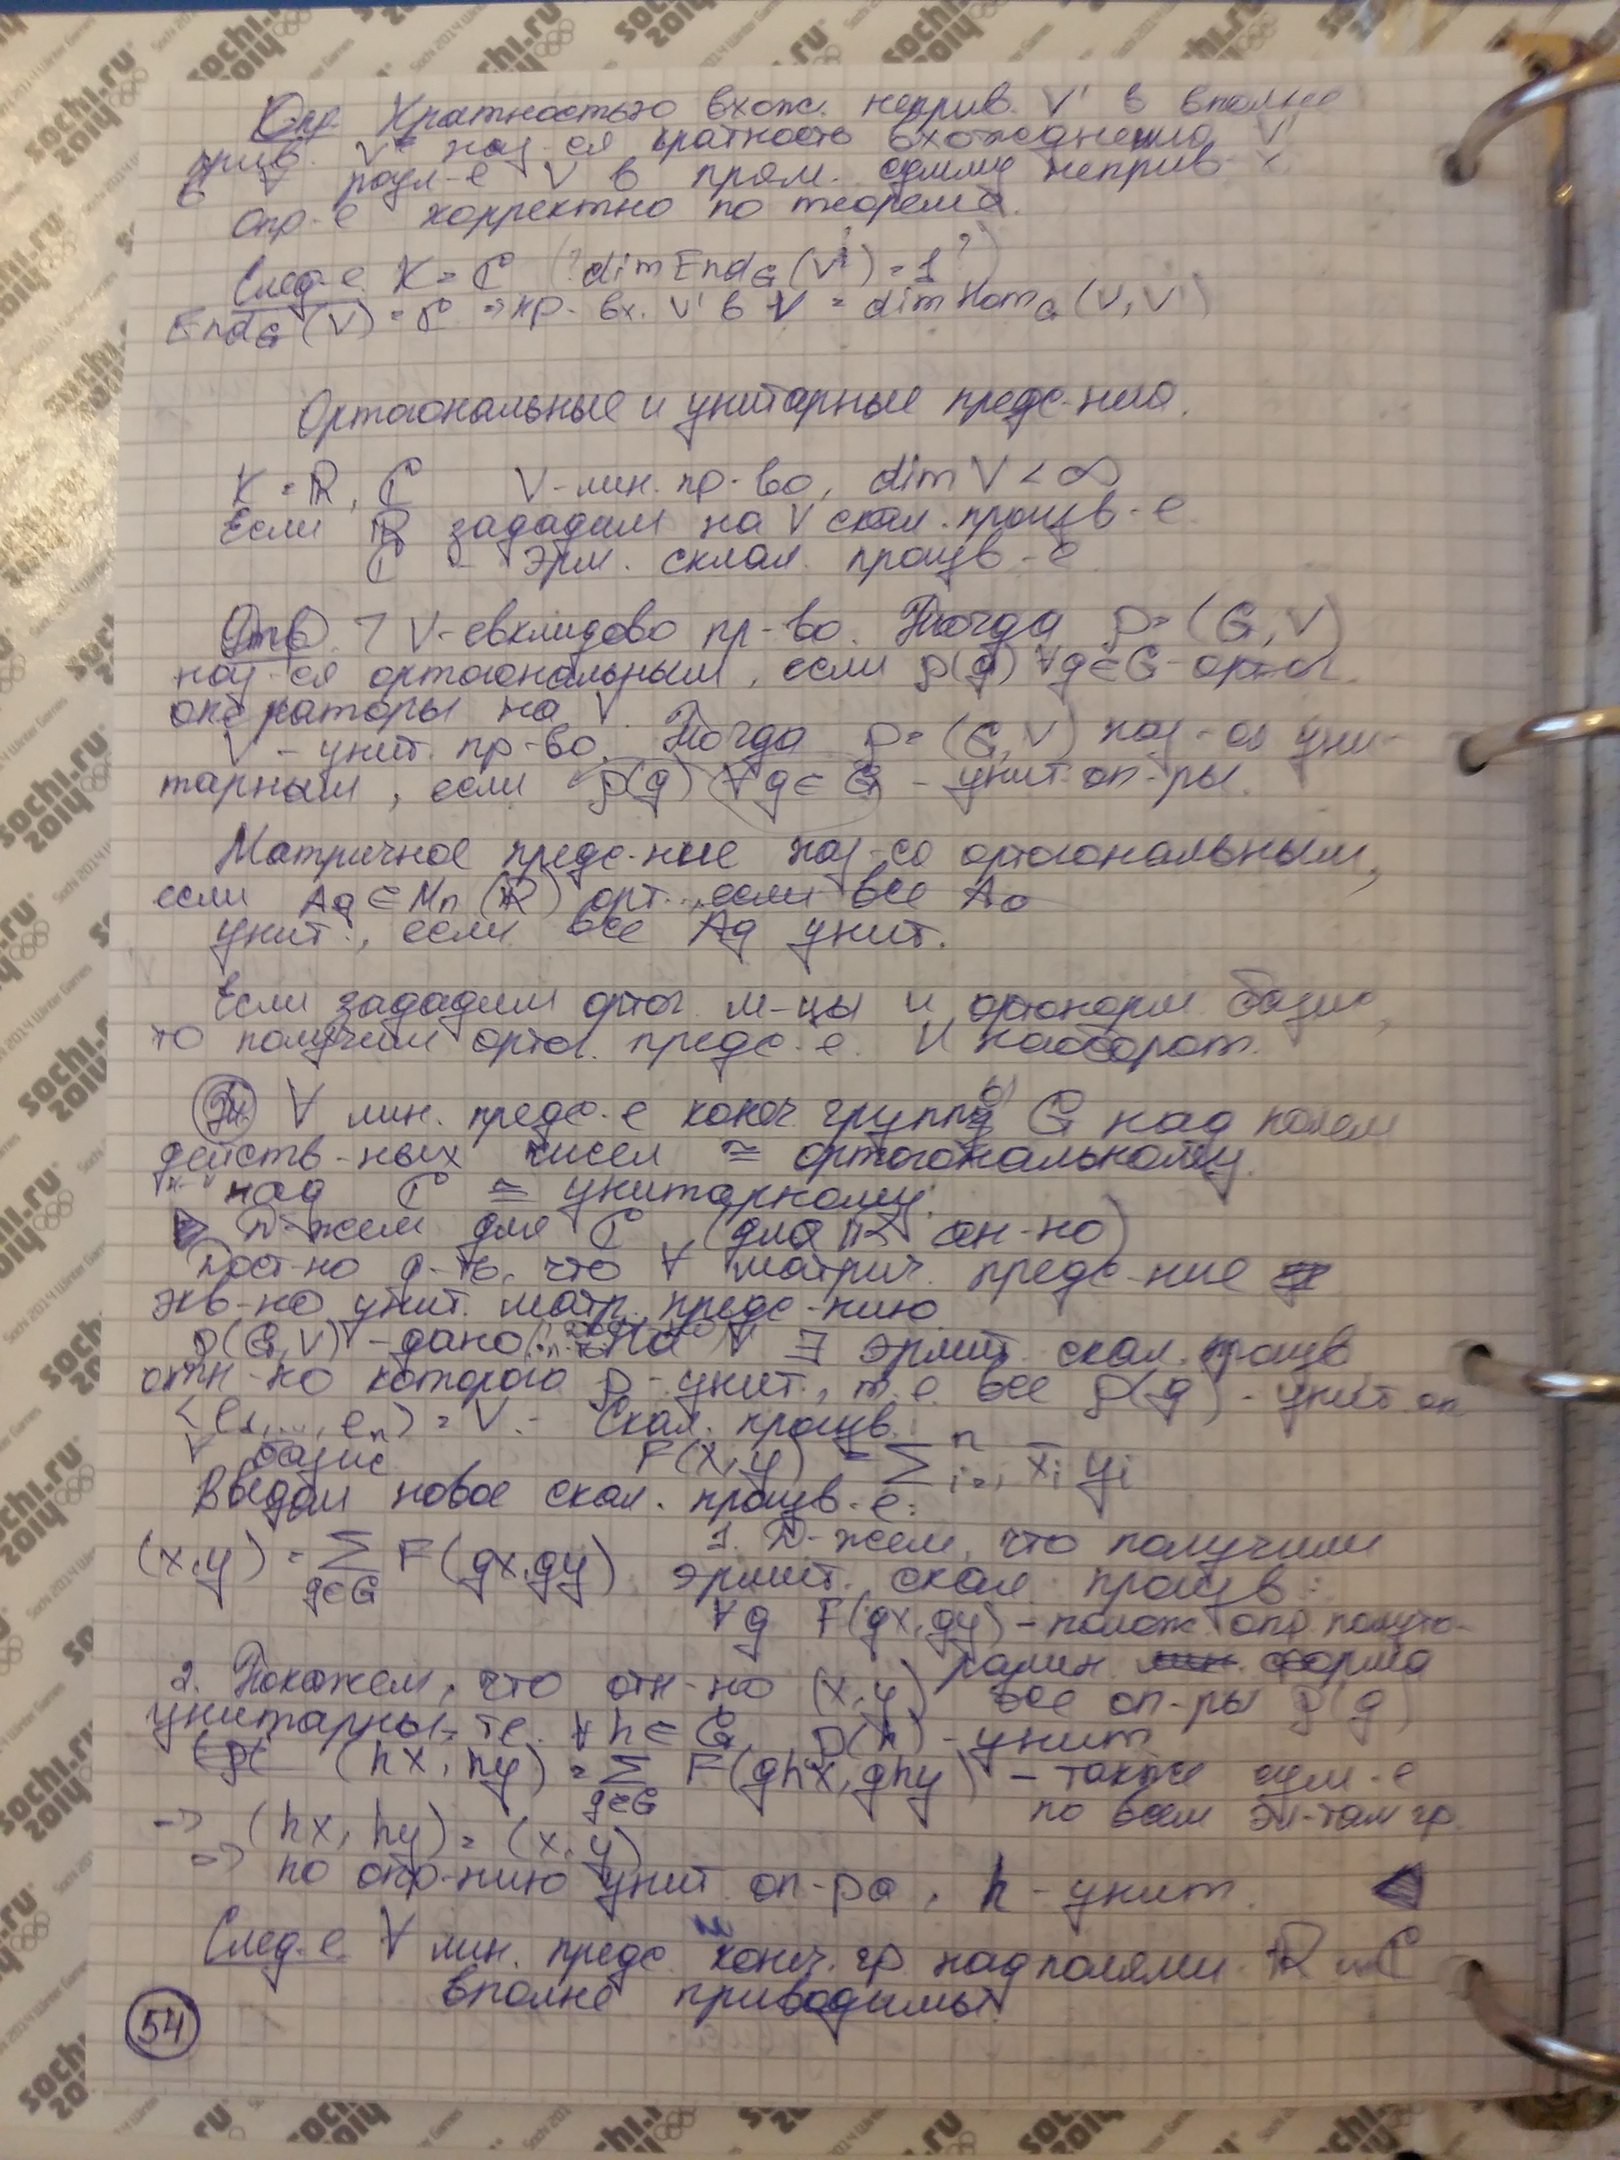 Опр. Кратностью вхож. неприв. V' в вполне
прив. V наз-ся кратность вхождения V'
в разл-е V в прям. сумму неприв-х.
Опр-е корректно по теореме.
След-е. K = ℂ (? dim End_G (V') = 1 ?)
End_G (V) = ℂ ⇒ кр. вх. V' в V = dim Hom_G (V, V')
Ортогональные и унитарные предс-ния.
K = ℝ, ℂ V - лин. пр-во, dim V < ∞
Если ℝ зададим на V скал. произв-е.
ℂ - эрм. скал. произв-е
Отв. ] V - евклидово пр-во. Тогда ρ = (G, V)
наз-ся ортогональным, если ρ(g) ∀g∈G - ортог.
операторы на V.
V - унит. пр-во. Тогда ρ = (G, V) наз-ся уни-
тарным, если ρ(g) (∀g∈G) - унит. оп-ры.
Матричное предс-ние наз-ся ортогональным,
если Ag ∈ Mn (ℝ) орт., если все Ag
унит., если все Ag унит.
Если зададим ортог. м-цы и ортонорм. базис,
то получим ортог. предс-е. И наоборот.
∀ лин. предс-е конеч. группы G над полем
действ-ных чисел ≅ ортогональному.
над ℂ ≅ унитарному.
Д-жем для ℂ (для ℝ ан-но)
Дост-но д-ть, что ∀ матрич. предс-ние
экв-но унит. матр. предс-нию.
ρ(G, V) - дано на V ∃ эрмит. скал. произв
отн-но которого ρ - унит., т.е. все ρ(g) - унит. оп
<e1, ..., en> = V. Скал. произв.:
∀ базис F(x, y) = ∑ⁿ i=1 x̄i yi
Введем новое скал. произв-е:
(x, y) = ∑ g∈G F(gx, gy) 1. Д-жем, что получили
эрмит. скал. произв.:
∀g F(gx, gy) - полож. опр. полуто-
ралин. форма
2. Покажем, что отн-но (x, y) все оп-ры ρ(g)
унитарны, т.е. ∀h∈G, ρ(h) - унит
(hx, hy) = ∑ g∈G F(ghx, ghy) - также сум-е
по всем эл-там гр.
⇒ (hx, hy) = (x, y)
⇒ по опр-нию унит. оп-ра, h - унит.
След-е ∀ лин. предс. конеч. гр. над полями ℝ и ℂ
вполне приводимы.
54
sochi.ru
2014
Sochi 2014 Winter Games